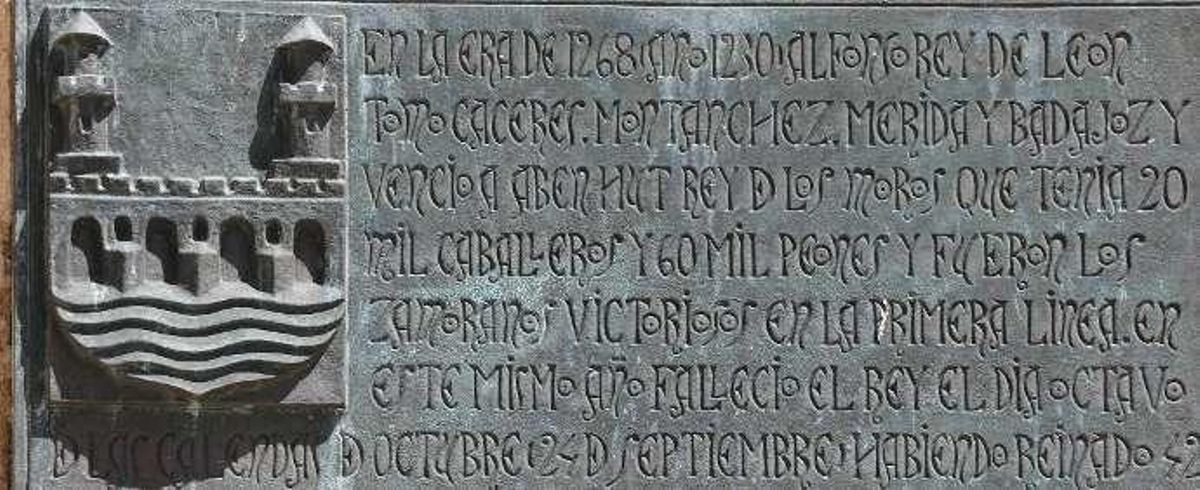 EN LA ERA DE 1268 (AÑO 1230) ALFONSO REY DE LEON
TOMO CACERES. MONTANCHEZ. MERIDA Y BADAJOZ Y
VENCIO A ABEN HUT REY D LOS MOROS QUE TENIA 20
MIL CABALLEROS Y 60 MIL PEONES Y FUERON LOS
ZAMORANOS VICTORIOSOS EN LA PRIMERA LINEA. EN
ESTE MISMO AÑO FALLECIO EL REY EL DIA OCTAVO
D LAS CALENDAS D OCTUBRE (24 D SEPTIEMBRE) HABIENDO REINADO 42